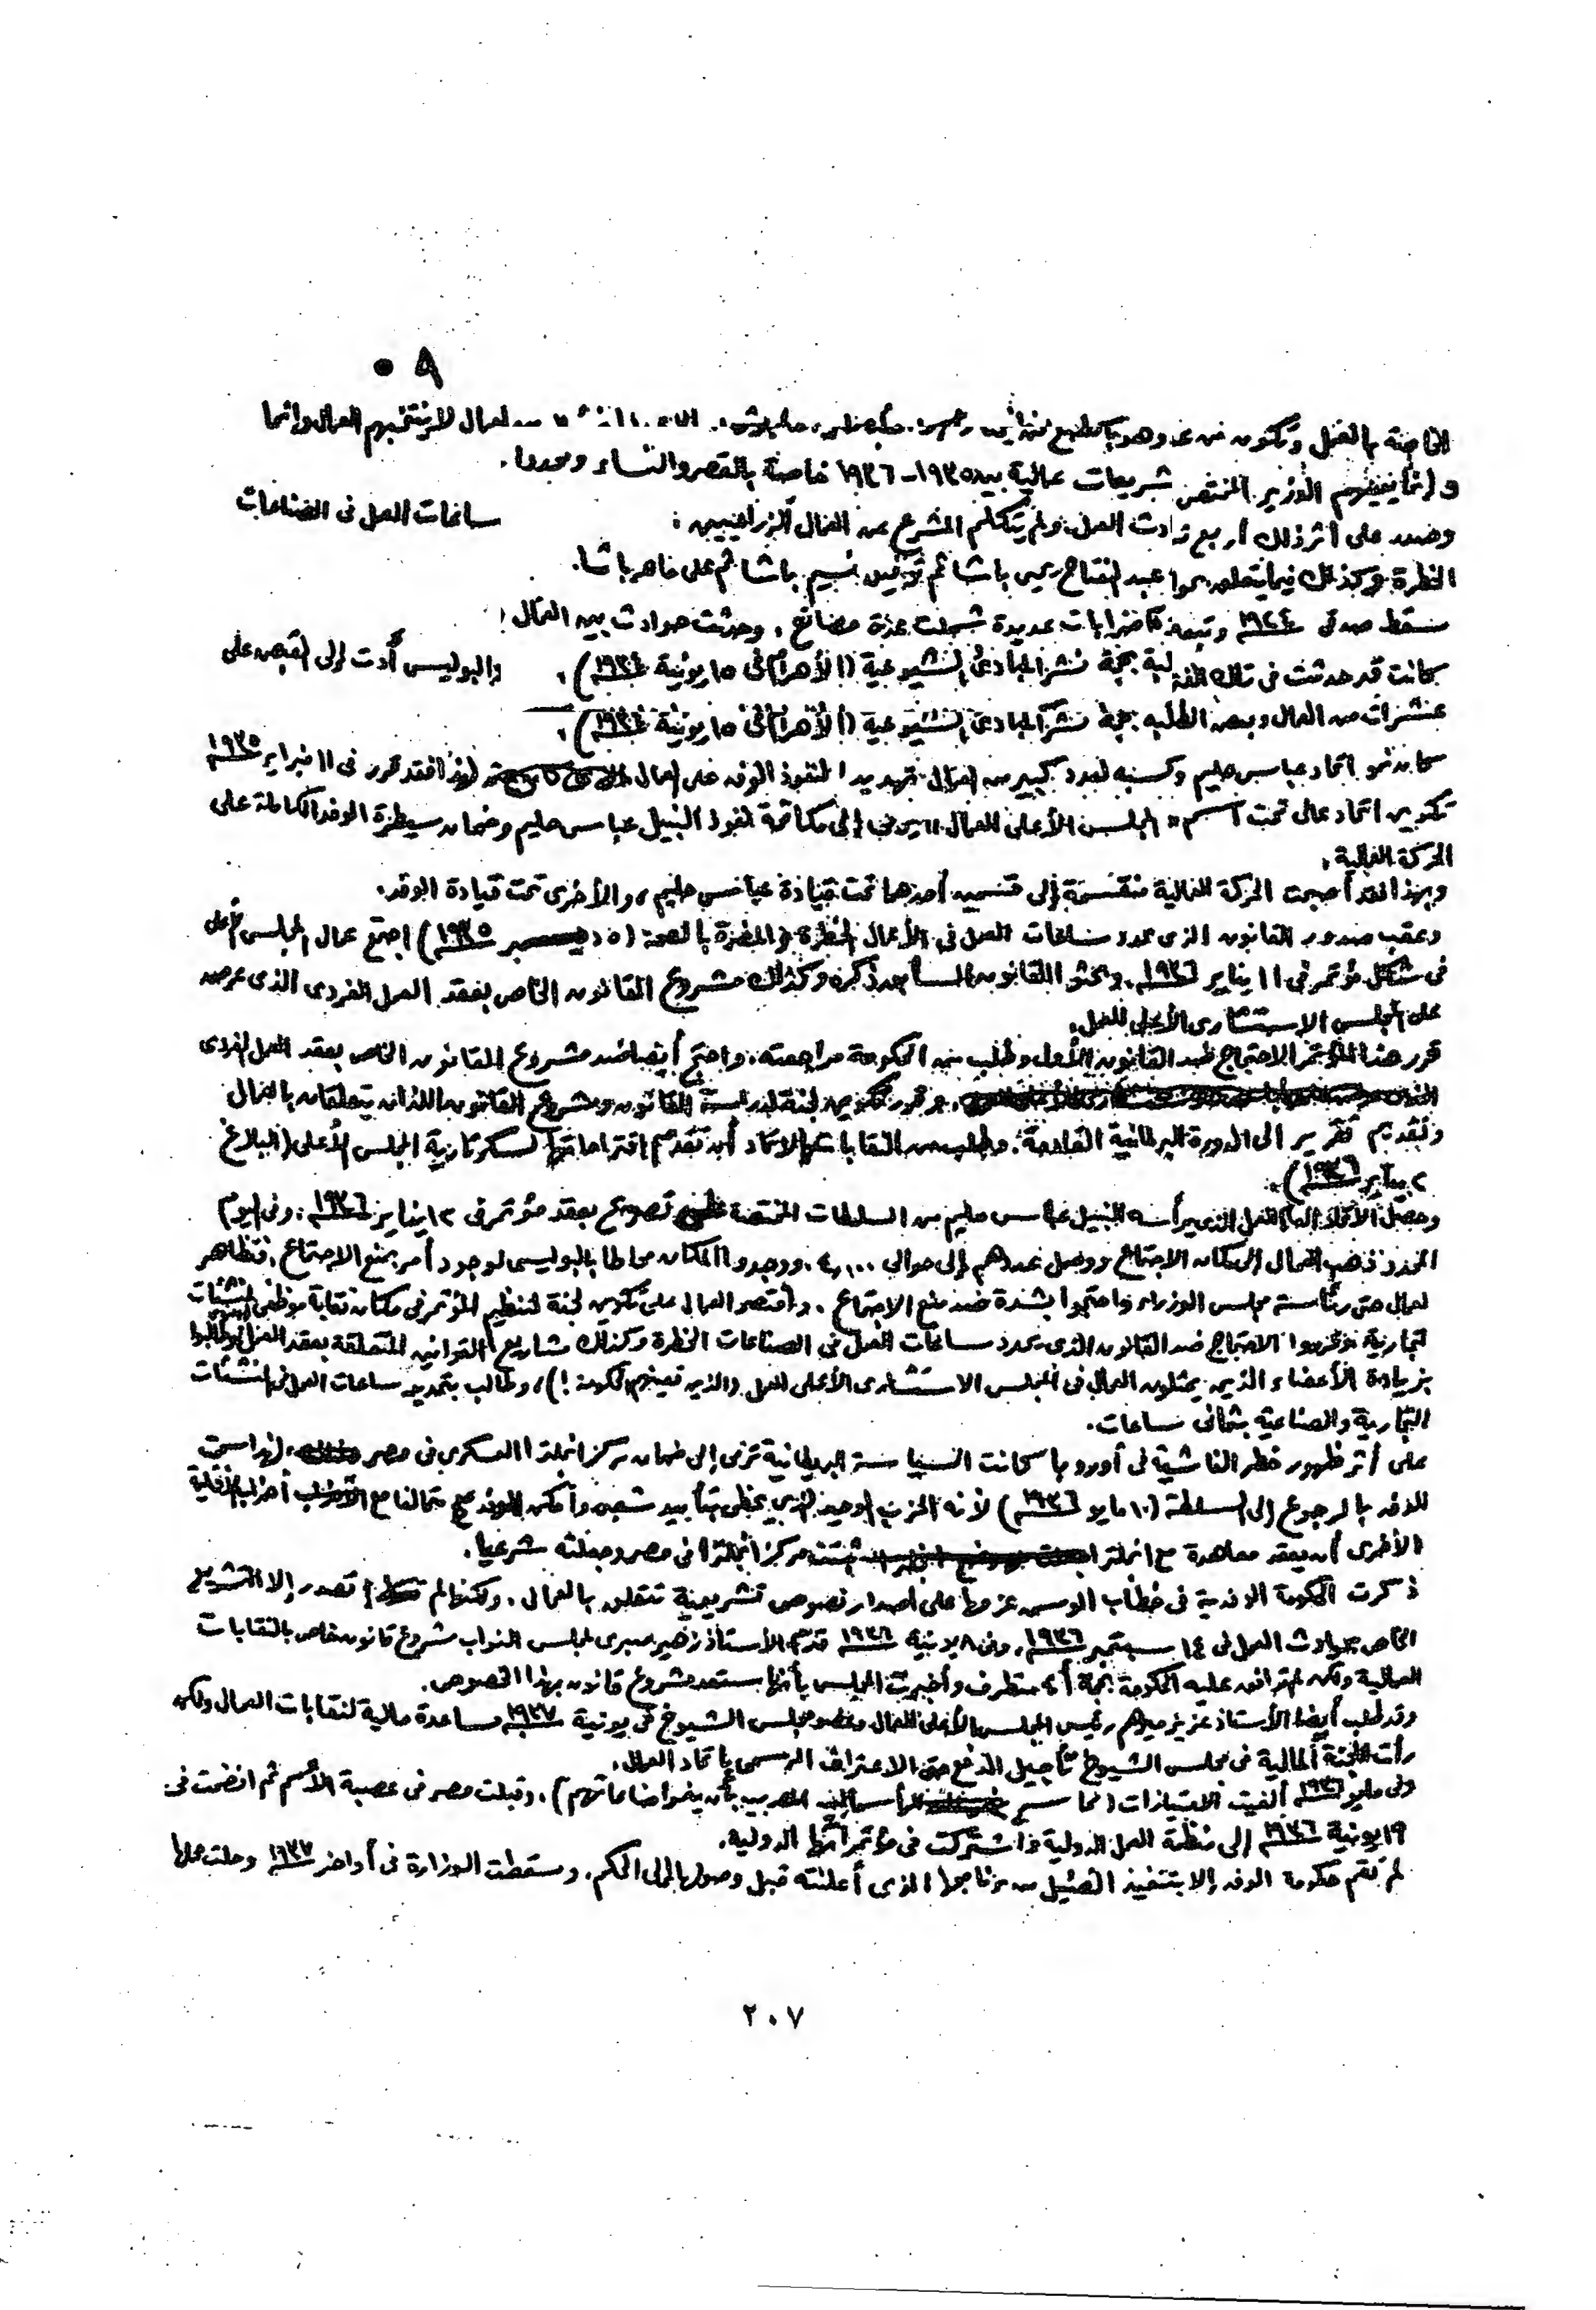 ٩
الخاصة بالعمل وتكون من لعمال لا ينتخبهم العمال وإنما
و إنما يعينهم الوزير المختص شريعات عمالية بين ١٩٣٥ - ١٩٣٦ خاصة بالقصر والنساء
وصدر على أثر ذلك أربع العمل. ولم يتكلم المشرع عن العمال الزراعيين. ساعات العمل فى الصناعات
الخطرة وكذلك فيما يتعلق عبد الفتاح يحيى باشا ثم توفيق نسيم باشا ثم على ماهر باشا.
سقط صدقى وتبعت اضرابات عديدة شملت عدة مصانع، وحدثت حوادث بين العمال
والبوليس أدت إلى القبض على
كانت قد حدثت فى تلك بحجة نشر المبادئ الشيوعية (الأهرام فى ١٥ يونية
عشرات من العمال وبعض الطلبه بحجة نشر المبادئ الشيوعية (الأهرام فى ١٥ يونية
كان نمو اتحاد عباس حليم وكسبه لعدد كبير من العمال تهديدا لنفوذ الوفد على العمال لهذا فقد قرر فى ١١ فبراير ١٩٣٥
تكوين اتحاد عمالى تحت اسم "المجلس الأعلى للعمال" يرمى إلى مكافحة نفوذ النبيل عباس حليم وضمان سيطرة الوفد الكاملة على
الحركة العمالية.
وبهذا أصبحت الحركة العمالية منقسمة إلى قسمين أحدهما تحت قيادة عباس حليم، والأخرى تحت قيادة الوفد.
وعقب صدور القانون الذى يحدد ساعات العمل فى الأعمال الخطرة والمضرة بالصحة (٥ ديسمبر ١٩٣٥) اجتمع عمال المجلس الأعلى
فى شكل مؤتمر فى ١١ يناير ١٩٣٦. وبحثوا القانون السابق ذكره وكذلك مشروع القانون الخاص بعقد العمل الفردى الذى عرض
على المجلس الإستشارى الأعلى للعمل.
قرر هذا المؤتمر الاحتجاج ضد القانون الأول وطلب من الحكومة مراجعته، واحتج أيضا ضد مشروع القانون الخاص بعقد العمل الفردى
قرر تكوين لجنة لدراسة القانون ومشروع القانون اللذان يتعلقان بالعمال
وتقديم تقرير الى الدورة البرلمانية القادمة. وطلب من النقابات والاتحاد أن تقدم اقتراحاتها لسكرتارية المجلس الأعلى (البلاغ
يناير ١٩٣٦).
وحصل الاتحاد العام للعمل الذى يرأسه النبيل عباس حليم من السلطات المختصة تصريح بعقد مؤتمر فى ١٢ يناير ١٩٣٦. وفى اليوم
المحدد ذهب العمال إلى مكان الاجتماع ووصل عددهم إلى حوالى ووجدوا المكان محاطا بالبوليس لوجود أمر بمنع الاجتماع. فتظاهر
لعمال حتى رئاسة مجلس الوزراء واحتجوا بشدة ضد منع الاجتماع. واقتصر العمال على تكوين لجنة لتنظيم المؤتمر فى مكان نقابة موظفى المنشئات
لتجارية الاحتجاج ضد القانون الذى يحدد ساعات العمل فى الصناعات الخطرة وكذلك مشاريع القوانين المتعلقة بعقد العمل وطالبوا
بزيادة الأعضاء الذين يمثلون العمال فى المجلس الاستشارى الأعلى للعمل (والذين تعينهم الحكومة!)، وطالب بتحديد ساعات العمل فى المنشئات
التجارية والصناعية بثمانى ساعات.
على أثر ظهور خطر الفاشية فى أوروبا كانت السياسة البريطانية ترمى إلى ضمان مركز انجلترا العسكرى فى مصر لهذا سمح
للوفد بالرجوع إلى السلطة (١٠ مايو ١٩٣٦) لأنه الحزب الوحيد الذى يحظى بتأييد شعبى وأمكن للوفد متحالفا مع أحزاب الأقلية
الأخرى أن يعقد معاهدة مع انجلترا مركز انجلترا فى مصر وجعلته شرعيا.
ذكرت الحكومة الوفدية فى خطاب العرش عزمها على أصدار نصوص تشريعية تتعلق بالعمال. ولكنها لم تصدر إلا التشريع
الخاص بحوادث العمل فى ١٤ سبتمبر ١٩٣٦. وفى ٨ يونية ١٩٣٦ قدم الأستاذ زهير صبرى لمجلس النواب مشروع قانون خاص بالنقابات
العمالية ولكن لم توافق عليه الحكومة بحجة أنه متطرف وأخبرت المجلس بأنها ستعد مشروع قانون بهذا الخصوص.
وقد طلب أيضا الأستاذ عزيز ميرهم رئيس المجلس الأعلى للعمال وعضو مجلس الشيوخ فى يونية ١٩٣٧ مساعدة مالية لنقابات العمال ولكن
رأت اللجنة المالية فى مجلس الشيوخ تأجيل الدفع حتى الاعتراف الرسمى باتحاد العمال.
وفى مايو ألغيت الامتيازات (مما سمح المصريين بأن ينموا صناعاتهم). وقبلت مصر فى عصبة الأمم ثم انضمت فى
١٩ يونية ١٩٣٦ إلى منظمة العمل الدولية واشتركت فى مؤتمراتها الدولية.
لم تقم حكومة الوفد إلا بتنفيذ الضئيل من برنامجها الذى أعلنته قبل وصولها إلى الحكم. وسقطت الوزارة فى أواخر ١٩٣٧ وحلت محلها
٢٠٧